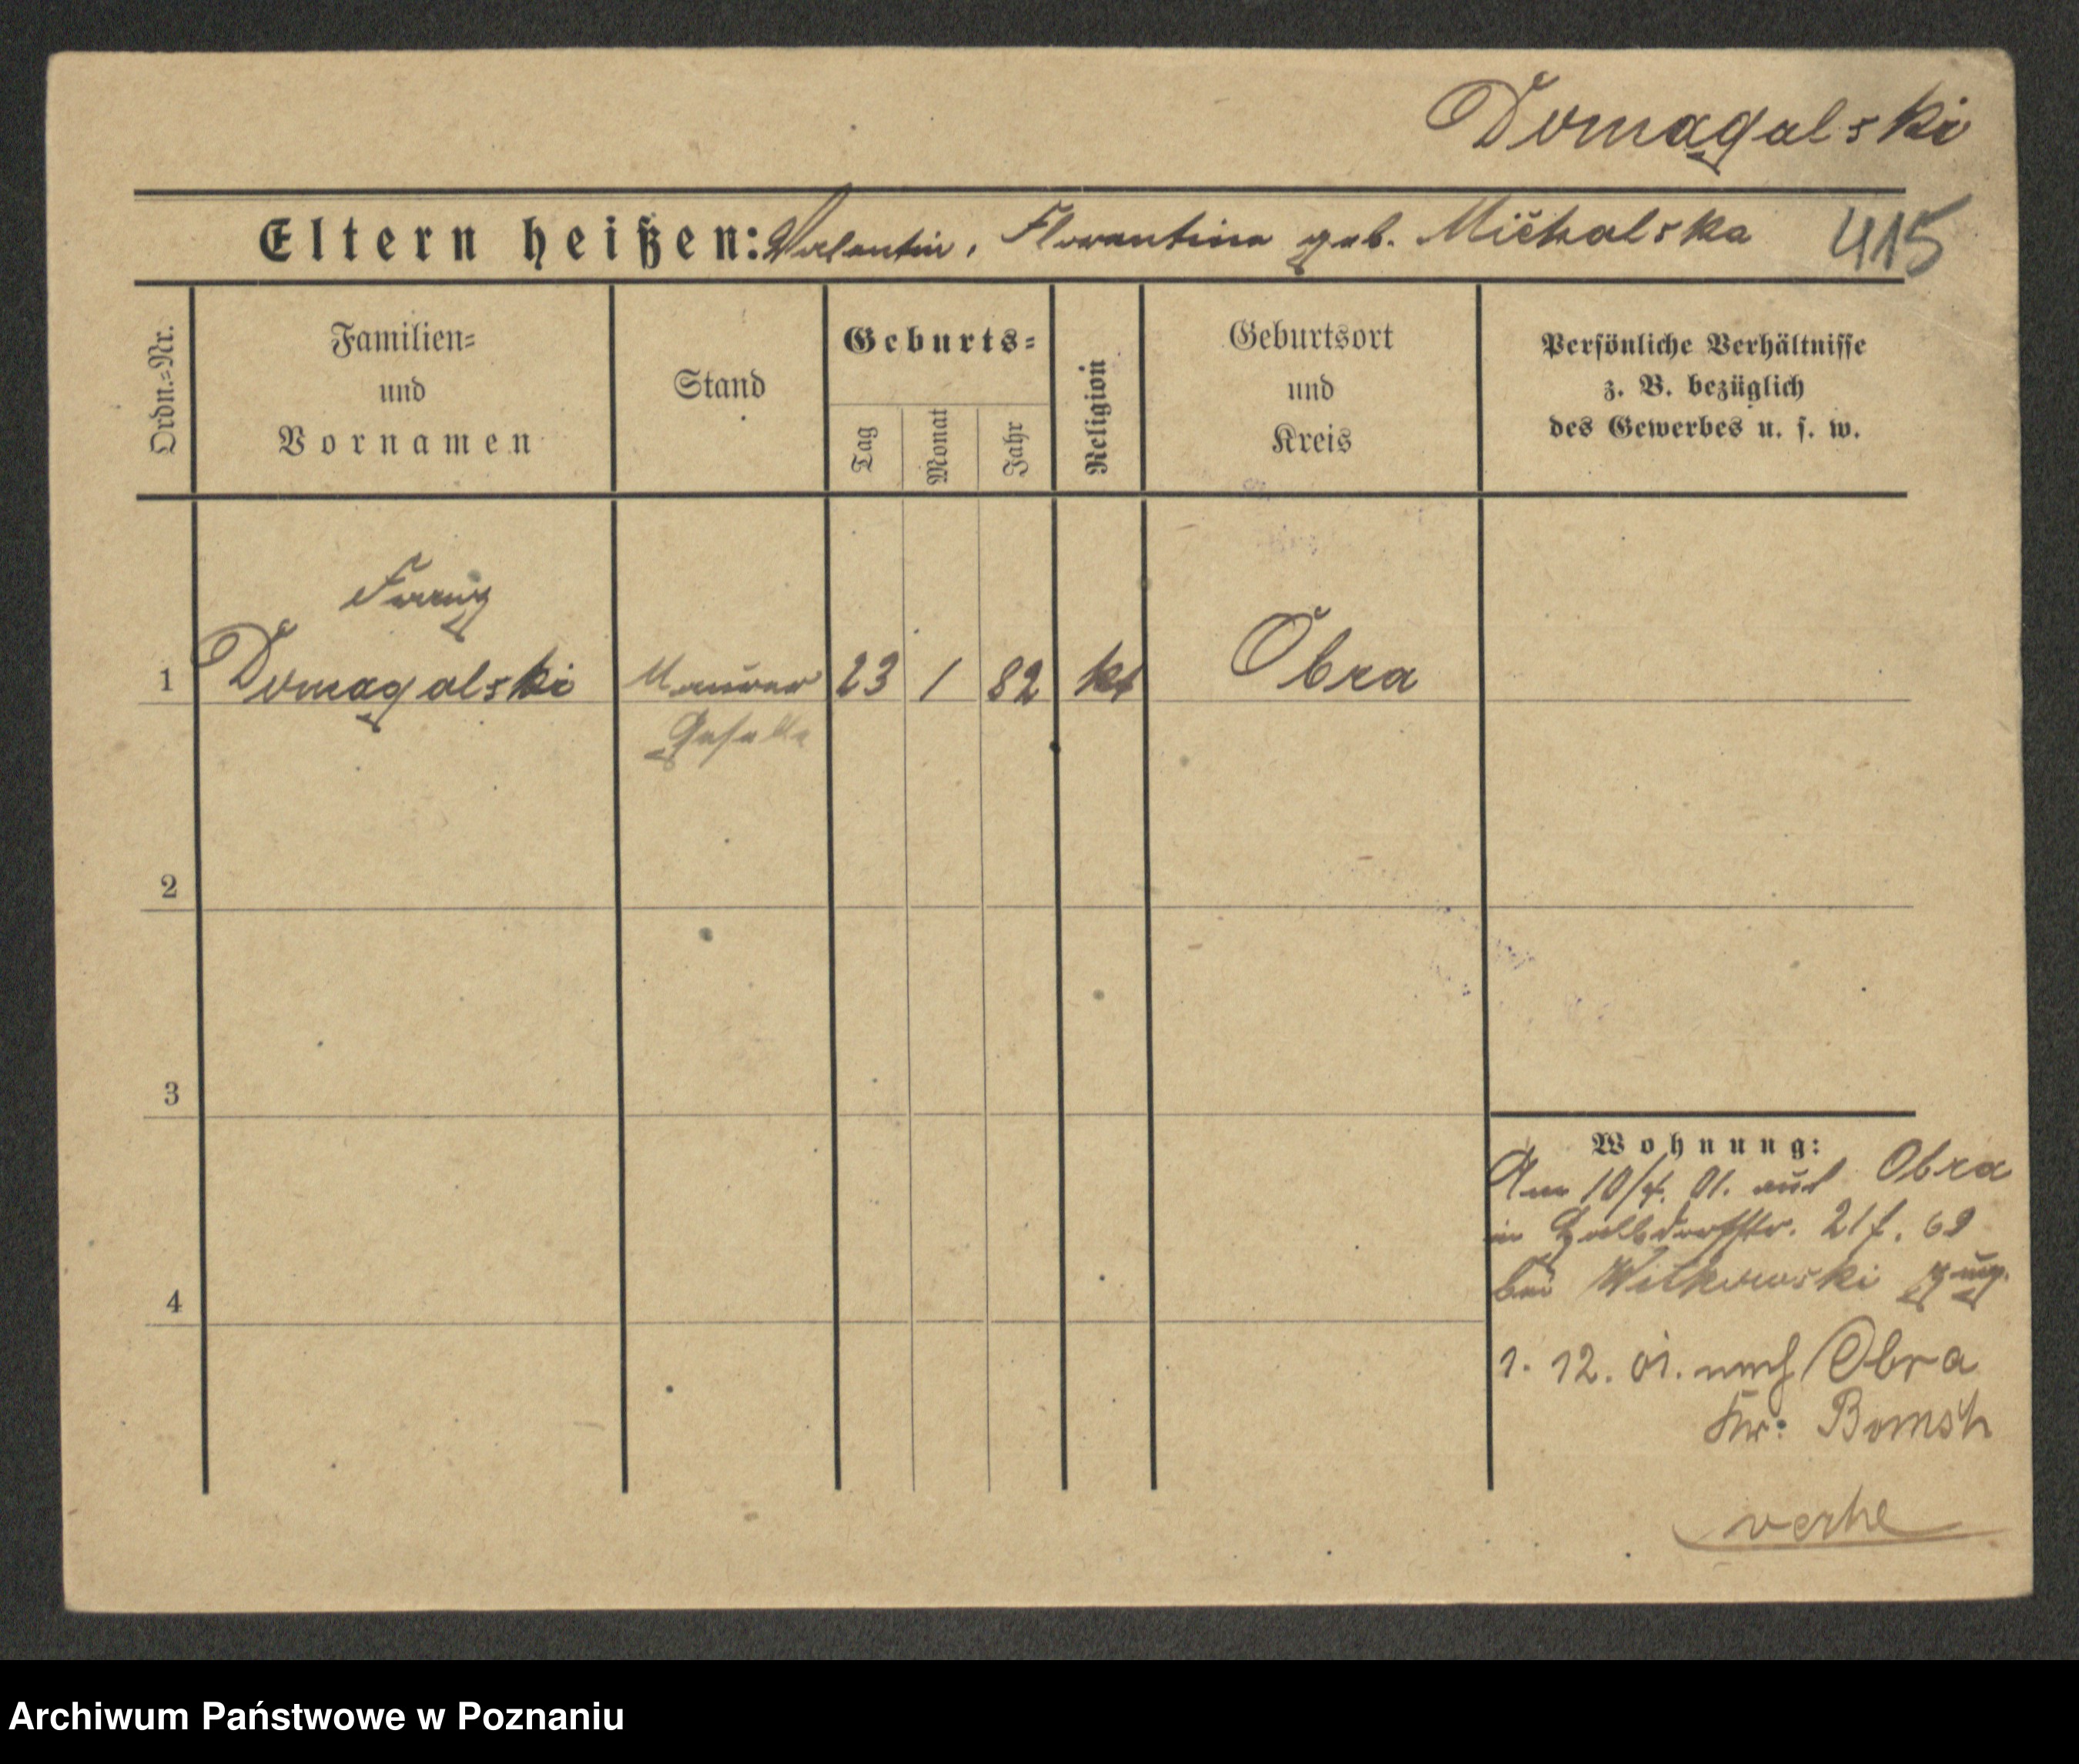 Domagalski
Eltern heißen: Valentin, Florentine geb. Michalska 415
Ordn.=Nr.
Familien=
und
Vornamen
Stand
Geburts=
Tag
Monat
Jahr
Religion
Geburtsort
und
Kreis
Persönliche Verhältnisse
z. B. bezüglich
des Gewerbes u. s. w.
Franz
1 Domagalski Maurer 23 1 82 kt Obra
Geselle
2
3
4
Wohnung:
Am 10/4. 01. aus Obra
in 21 f. 69
bei Witkowski zug.
1. 12. 01. nach Obra
Kr: Bomst
Archiwum Państwowe w Poznaniu